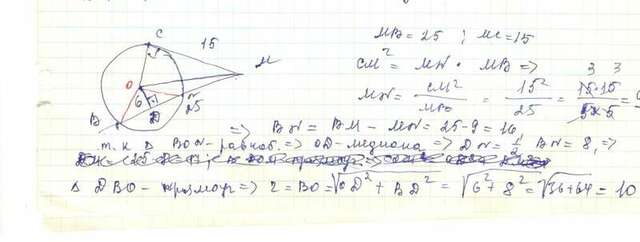 C
15
M
O
6
D
N
25
B
MB = 25 ; MC = 15
CM² = MN · MB =>
MN = CM²/MB = 15²/25 = 15·15/5·5 =
3 3
=> BN = BM - MN = 25 - 9 = 16
т.к Δ BON - равноб. => OD - медиана => DN = 1/2 BN = 8, =>
Δ DBO - прямоуг => r = BO = √OD² + BD² = √6² + 8² = √36+64 = 10